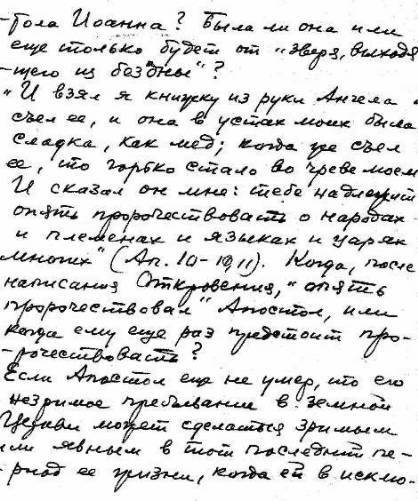 -тола Иоанна? Была ли она или
еще только будет от "зверя, выходя-
-щего из бездны"?
"И взял я книжку из руки Ангела
съел ее, и она в устах моих была
сладка, как мед; когда же съел
ее, то горько стало во чреве моем
И сказал он мне: тебе надлежит
опять пророчествовать о народах
и племенах и языках и царях
многих" (Ап. 10-10,11). Когда, после
написания Откровения, "опять
пророчествовал" Апостол, или
когда ему еще раз предстоит про-
-рочествовать?
Если Апостол еще не умер, то его
незримое пребывание в земной
Церкви может сделаться зримым
или явным в тот последний пе-
-риод ее жизни, когда ей в исклю-